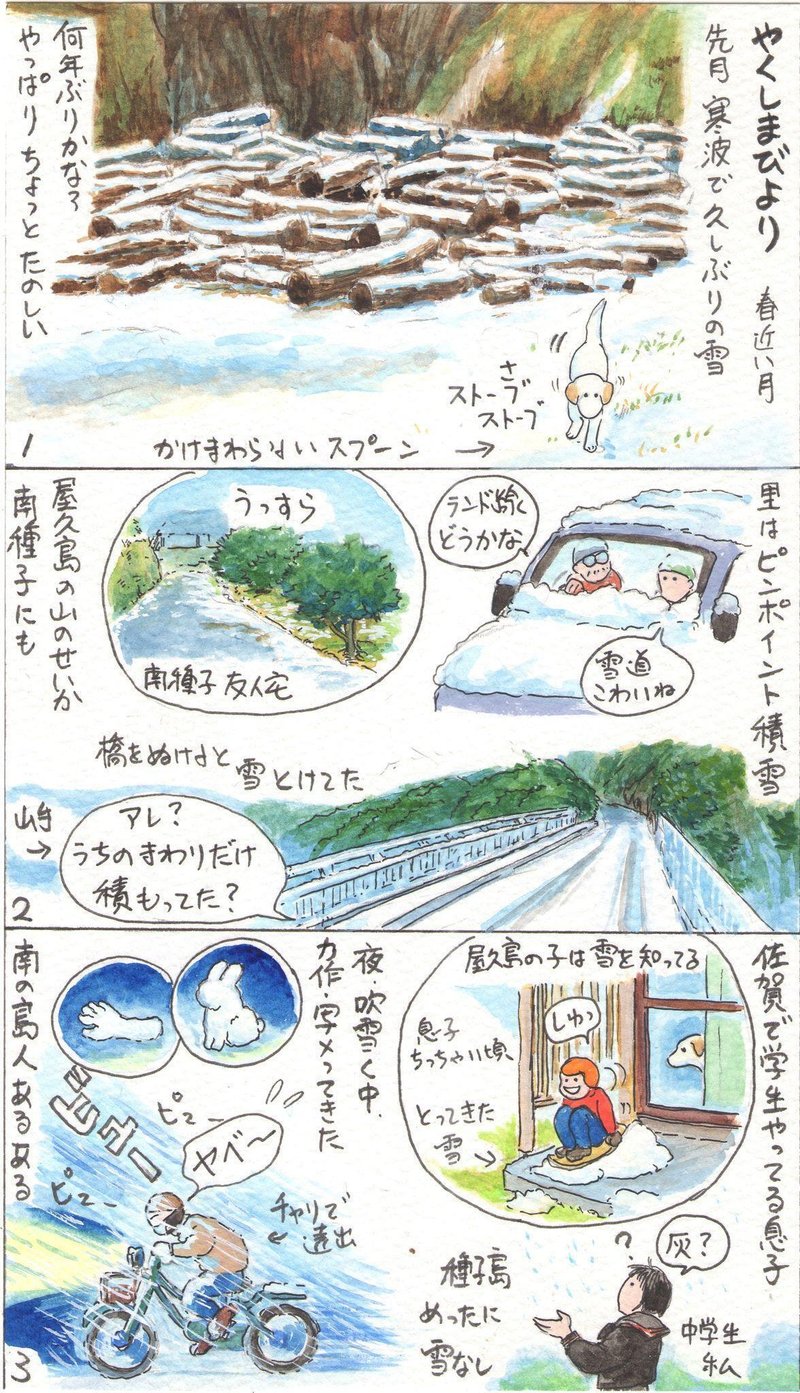 やくしまびより
春近い月
先月 寒波で 久しぶりの雪
何年ぶりかな?
やっぱり ちょっと たのしい
さ
ストーブ
ストーブ
かけまわらないスプーン →
1
里はピンポイント積雪
ランド除く
どうかな、
雪道
こわいね
うっすら
南種子 友人宅
屋久島の山のせいか
南種子にも
橋をぬけると
雪とけてた
アレ?
うちのまわりだけ
積もってた?
→
2
佐賀で学生やってる息子
屋久島の子は雪を知ってる
息子
ちっちゃい頃
とってきた
雪 →
しゅっ
夜・吹雪く中、
力作・写メってきた
南の島人あるある
ジュワー
ピュー
ピュー
ヤベ〜
チャリで
← 遠出
種子島
めったに
雪なし
?
灰?
中学生
私
3